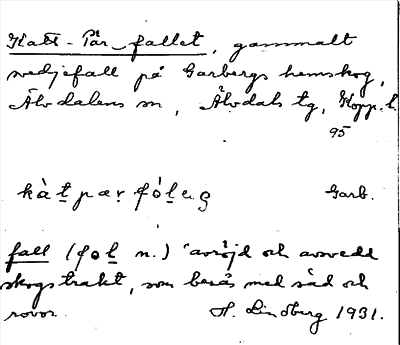 Katt-Pär-fallet, gammalt
svedjefall på Garbergs hemskog,
Älvdalens sn, Älvdals tg, Kopp. l.
95
kàt pær fó̀leg Garb.
fall (fol n.) "avröjd och avsvedd
skogstrakt, som besås med säd och
rovor. H. Lindberg 1931.